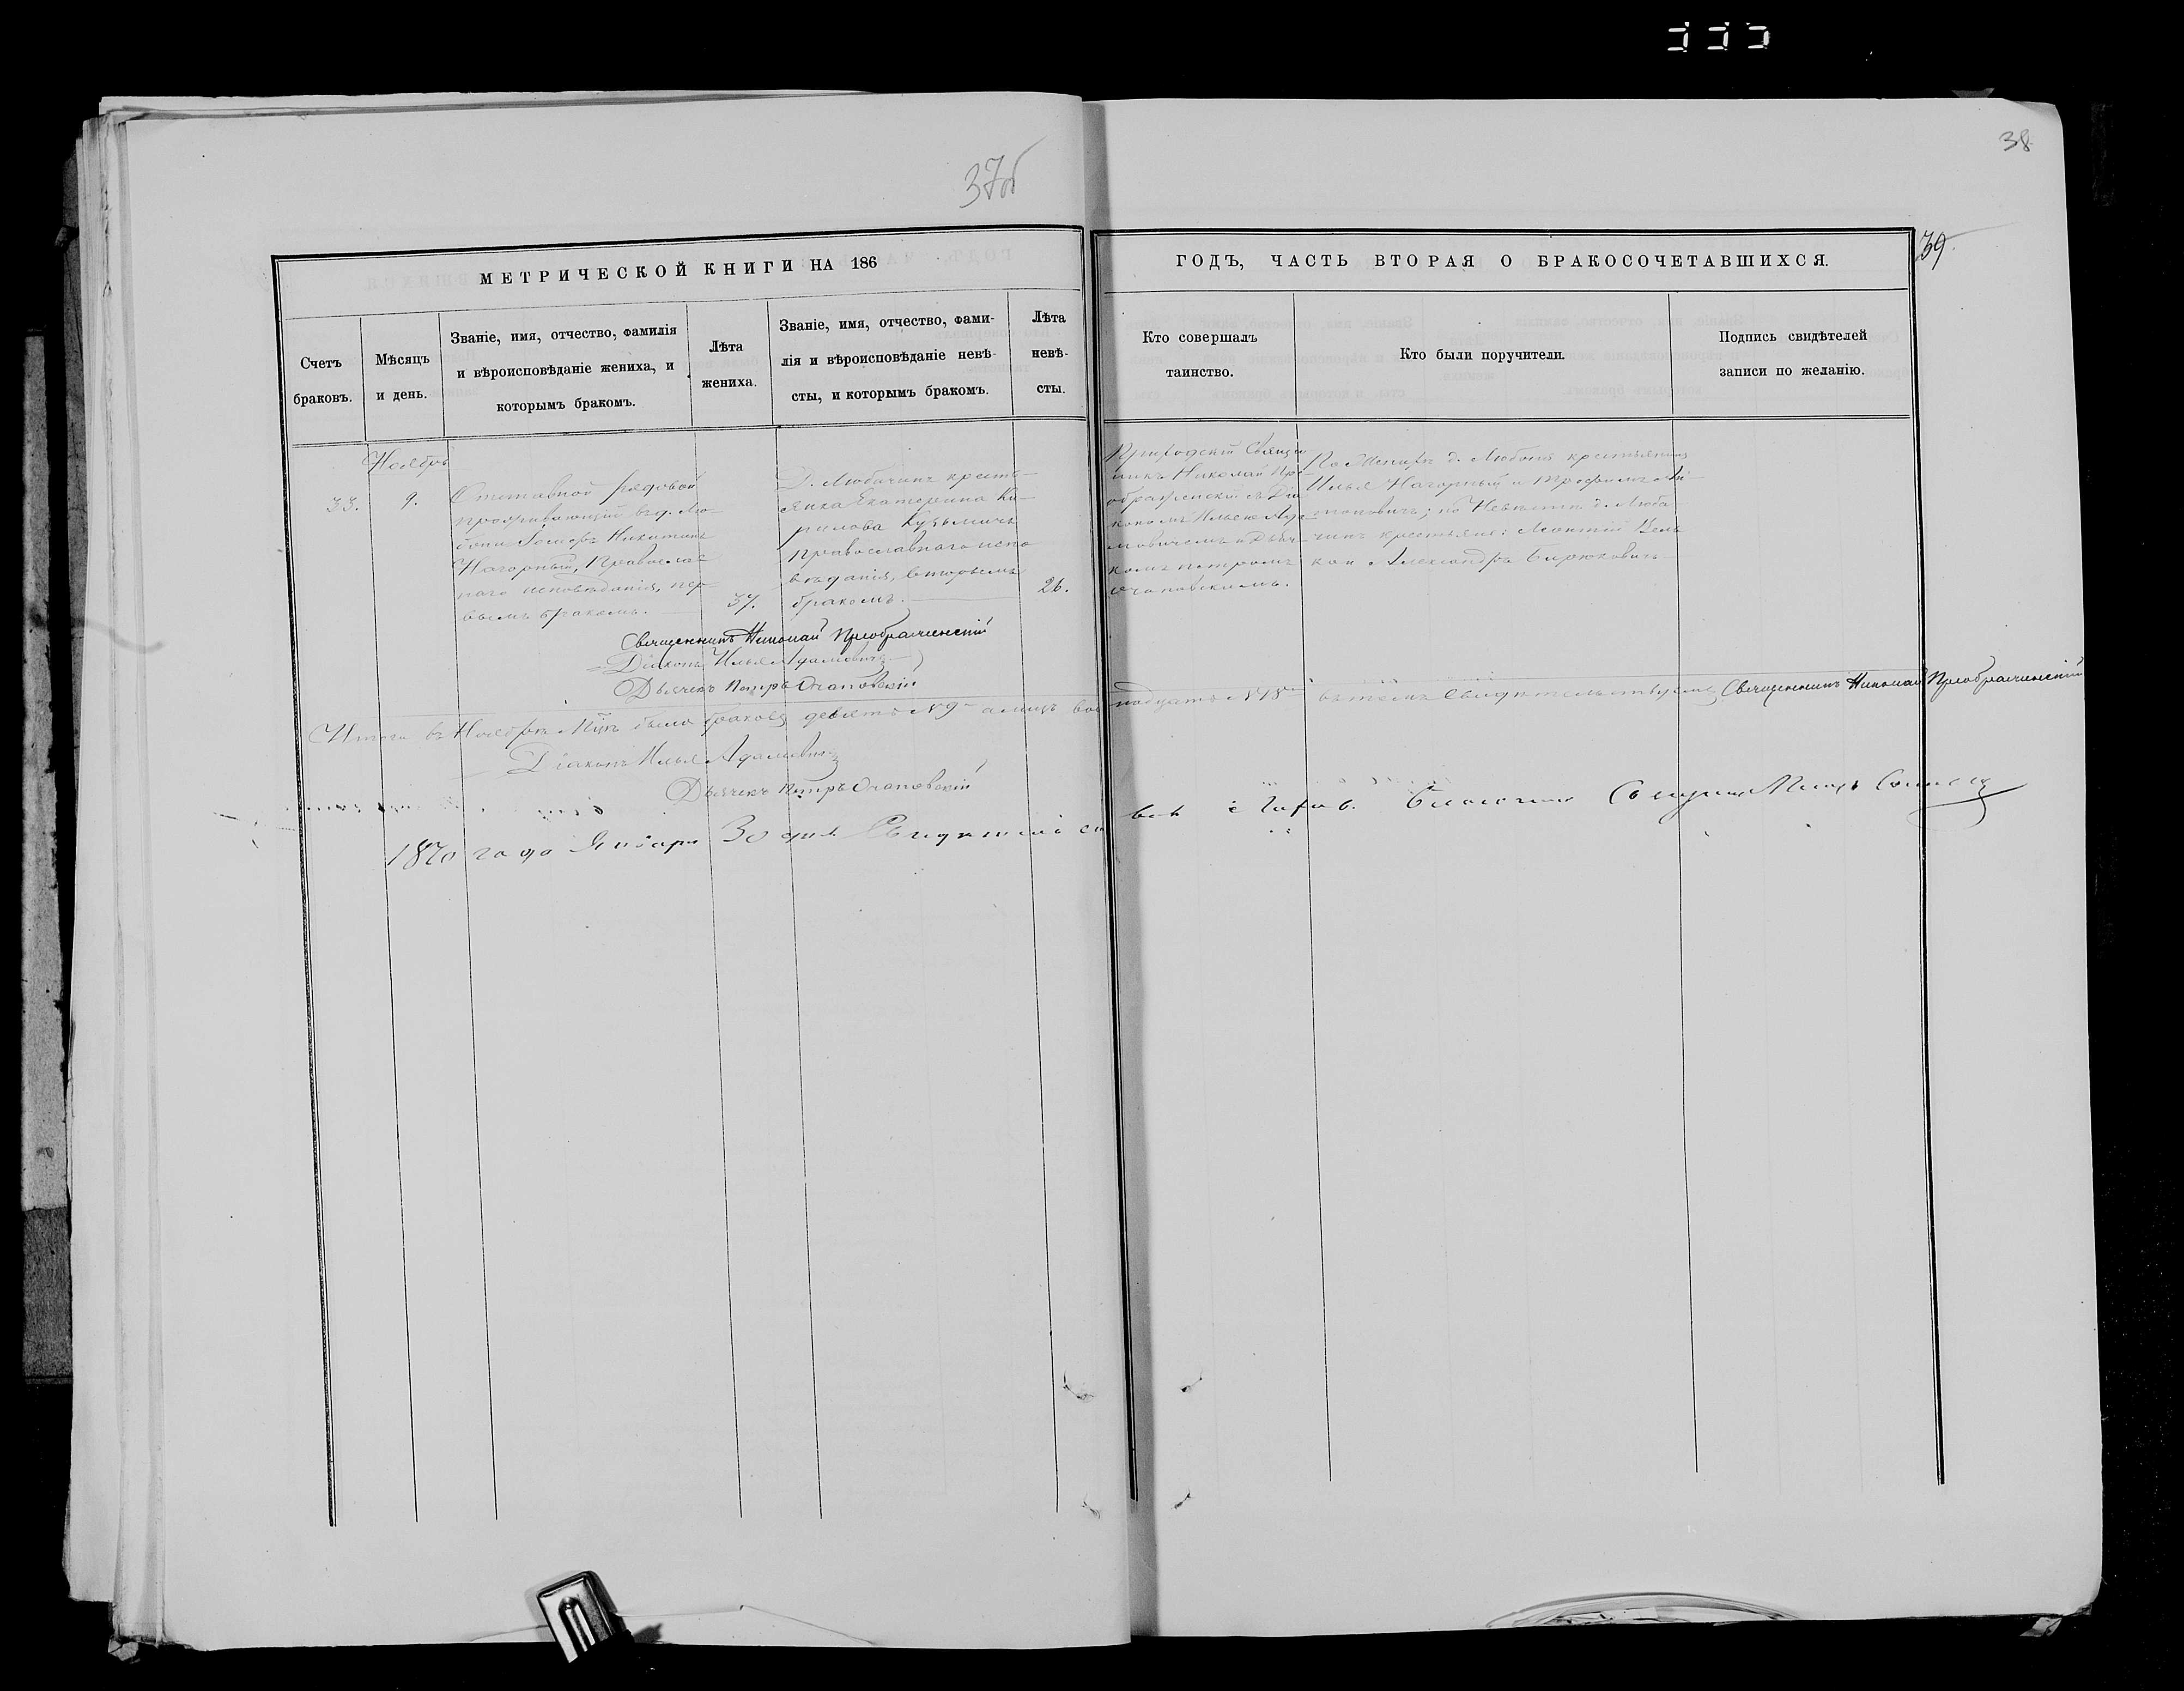 38
37об
39.
МЕТРИЧЕСКОЙ КНИГИ НА 186
ГОДЪ, ЧАСТЬ ВТОРАЯ О БРАКОСОЧЕТАВШИХСЯ.
Счетъ
браковъ.
Мѣсяцъ
и день.
Званіе, имя, отчество, фамилія
и вѣроисповѣданіе жениха, и
которымъ бракомъ.
Лѣта
жениха.
Званіе, имя, отчество, фами-
лія и вѣроисповѣданіе невѣ-
сты, и которымъ бракомъ.
Лѣта
невѣ-
сты.
Кто совершалъ
таинство.
Кто были поручители.
Подпись свидѣтелей
записи по желанію.
Ноябрь
33.
9.
Отставной рядовой
проживающій въ д. Лю-
бани Іосифъ Никитинъ
Нагорный, Православ-
наго исповѣданія, пер-
вымъ бракомъ.
37.
Д. Любачинъ кресть-
янка Екатерина Ки-
рилова Кузьмичъ
православнаго испо-
вѣданія, вторымъ
бракомъ.
26.
Приходскій Священ
никъ Николай Пре-
ображенскій съ Діа
кономъ Ильею Ада-
мовичемъ и Дьяч-
комъ Петромъ
По Женихѣ д. Любани крестьяне
Илья Нагорный и Трофимъ
по Невѣстѣ д. Люба
чинъ крестьяне: Леонтій
Александръ Бирюковичъ
Священникъ Николай Преображенскій
Діаконъ Илья Адамовичъ
Дьячекъ Петръ
Итого въ Ноябрѣ м-цѣ было браковъ девять № 9 а лицъ вос
надцать № 18 въ томъ свидѣтельствуемъ Священникъ Николай Преображенскій
Діаконъ Илья Адамовичъ
Дьячекъ Петръ
1870 года Января 30 дня